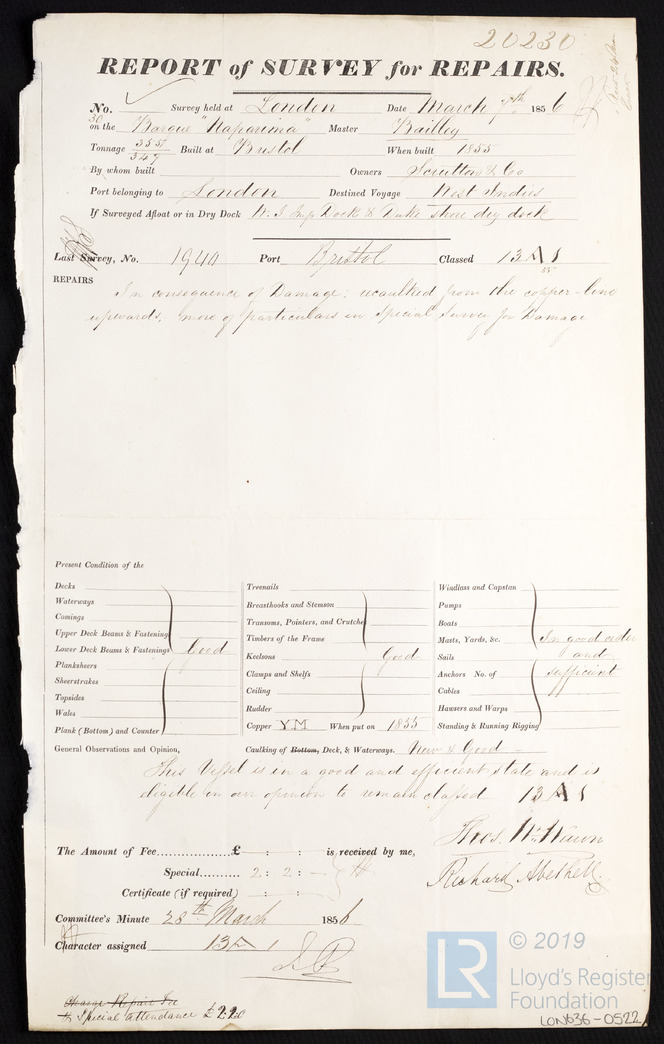 20230
REPORT of SURVEY for REPAIRS.
No. Survey held at London Date March 7th 1856
30 on the Barque "Naparima" Master Bailley
Tonnage 355/347 Built at Bristol When built 1855
By whom built Owners Scrutton & Co
Port belonging to London Destined Voyage West Indies
If Surveyed Afloat or in Dry Dock W. I Imp Dock & Duke Shore dry dock
Last Survey, No. 1940 Port Bristol Classed 13 A 1
55
REPAIRS
In consequence of Damage; recaulked from the copper-line
upwards; more of particulars in Special Survey for Damage
Present Condition of the
Decks
Waterways
Comings
Upper Deck Beams & Fastenings
Lower Deck Beams & Fastenings Good
Planksheers
Sheerstrakes
Topsides
Wales
Plank (Bottom) and Counter
Treenails
Breasthooks and Stemson
Transoms, Pointers, and Crutches
Timbers of the Frame
Keelsons Good
Clamps and Shelfs
Ceiling
Rudder
Copper Y.M When put on 1855
Windlass and Capstan
Pumps
Boats
Masts, Yards, &c. In good order
Sails and
Anchors No. of sufficient
Cables
Hawsers and Warps
Standing & Running Rigging
General Observations and Opinion, Caulking of Bottom, Deck, & Waterways. New & Good
This Vessel is in a good and efficient state and is
eligible in our opinion to remain classed 13 A 1
Thos. Wm
Richard Abethell
The Amount of Fee.................£ : : is received by me,
Special.......... 2 : 2 : —
Certificate (if required) : :
Committee's Minute 28th March 1856
Character assigned 13 A 1
Charge Repair Fee
Special attendance £2.2.0
LR © 2019
Lloyd's Register
Foundation
LON636-0522